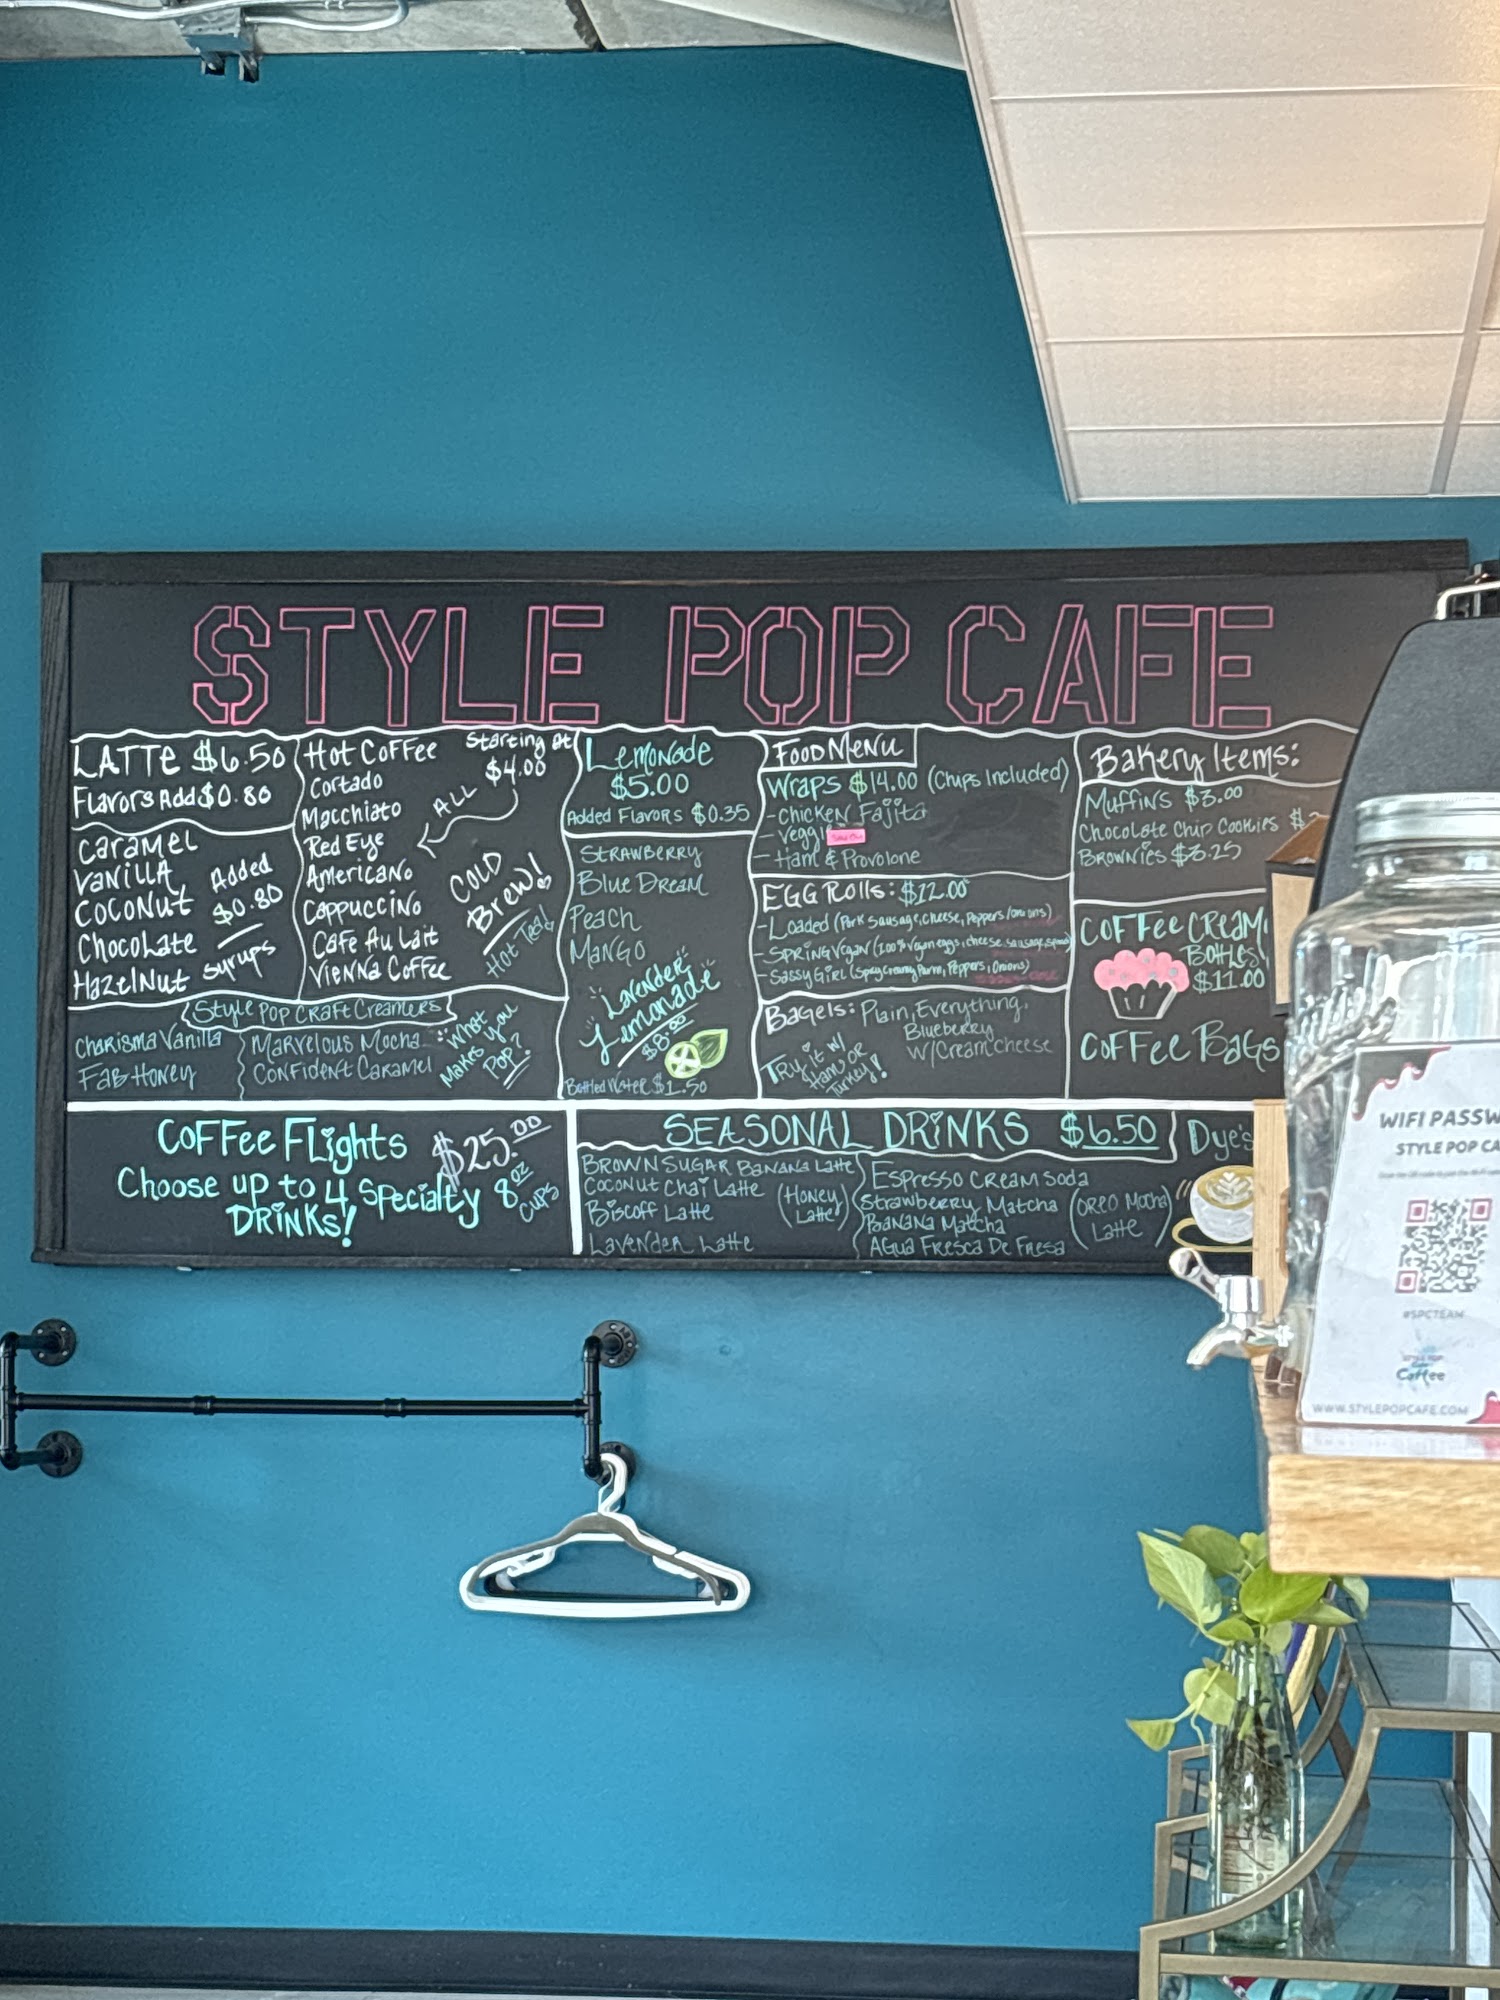 STYLE POP CAFE
LATTE $6.50
Flavors Add $0.80
Caramel
Vanilla
Coconut
Chocolate
Hazelnut
Added
$0.80
Syrups
Hot Coffee
Starting at
$4.00
ALL
Cortado
Macchiato
Red Eye
Americano
Cappuccino
Cafe Au Lait
Vienna Coffee
COLD
Brew!
Hot Tea!
Style Pop Craft Creamers
Charisma Vanilla
Fab Honey
Marvelous Mocha
Confident Caramel
What
Makes You
Pop?
Lemonade
$5.00
Added Flavors $0.35
Strawberry
Blue Dream
Peach
Mango
Lavender
Lemonade
$8.00
Bottled Water $1.50
Food Menu
Wraps $14.00 (Chips Included)
- Chicken Fajita
- Veggi
- Ham & Provolone
Egg Rolls: $12.00
- Loaded (Pork Sausage, Cheese, Peppers/Onions)
- Spring Vegan (100% Vegan eggs, cheese, sausage,
- Sassy Girl (Spicy Creamy Parm, Peppers, Onions)
Bagels: Plain, Everything,
Blueberry
W/Cream cheese
Try it w/
Ham or
Turkey!
Bakery Items:
Muffins $3.00
Chocolate Chip Cookies $
Brownies $3.25
Coffee Cream
Bottles
$11.00
Coffee Bags
Coffee Flights
$25.00
Choose up to 4 Specialty
Drinks!
8oz
cups
SEASONAL DRINKS $6.50
Brown Sugar Banana Latte
Coconut Chai Latte
Biscoff Latte
Lavender Latte
(Honey
Latte)
Espresso Cream Soda
Strawberry Matcha
Banana Matcha
Agua Fresca De Fresa
(Oreo Mocha
Latte)
Dye's
WIFI PASSW
STYLE POP CA
#SPCTEAM
STYLE POP
Coffee
WWW.STYLEPOPCAFE.COM